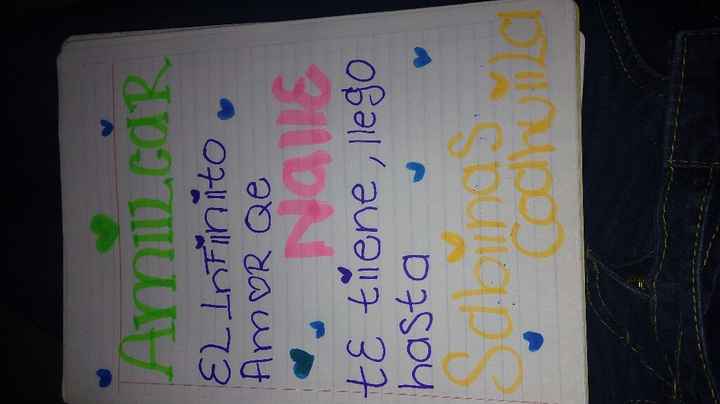 AmiiLcaR
EL InFiiniito
AmoR Qe
Nalle
tE tiiene, llego
hasta
Sabiinas
Coahuiila